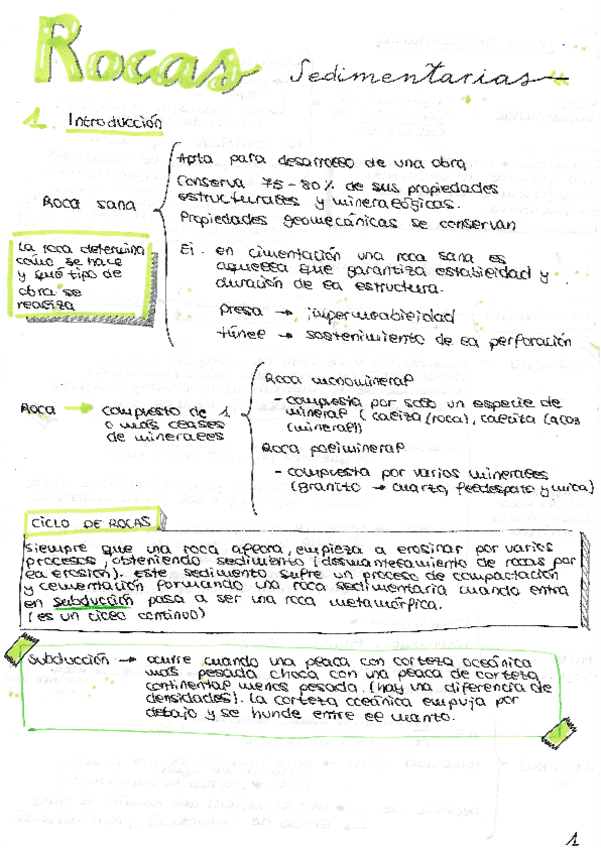 Rocas Sedimentarias
1. Introducción
Apta para desarrollo de una obra.
Conserva 75-80% de sus propiedades
estructurales y mineralógicas.
Roca sana
Propiedades geomecánicas se conservan
La roca determina
cómo se hace
y qué tipo de
obra se
realiza
Ej. en cimentación una roca sana es
aquella que garantiza estabilidad y
duración de la estructura.
Presa → impermeabilidad
túnel → sostenimiento de la perforación
Roca monomineral
- compuesta por solo un especie de
mineral (caliza (roca), calcita
(mineral))
Roca → compuesto de 1
o más clases
de minerales
Roca polimineral
- compuesta por varios minerales
(granito → cuarzo, feldespato y mica)
CICLO DE ROCAS
Siempre que una roca aflora, empieza a erosinar por varios
procesos, obteniendo sedimento (desmantelamiento de rocas por
la erosión). Este sedimento sufre un proceso de compactación
y cementación formando una roca sedimentaria cuando entra
en subducción pasa a ser una roca metamórfica.
(es un ciclo continuo)
Subducción → ocurre cuando una placa con corteza oceánica
más pesada choca con una placa de corteza
continental menos pesada. (hay una diferencia de
densidades). La corteza oceánica empuja por
debajo y se hunde entre el manto.
1